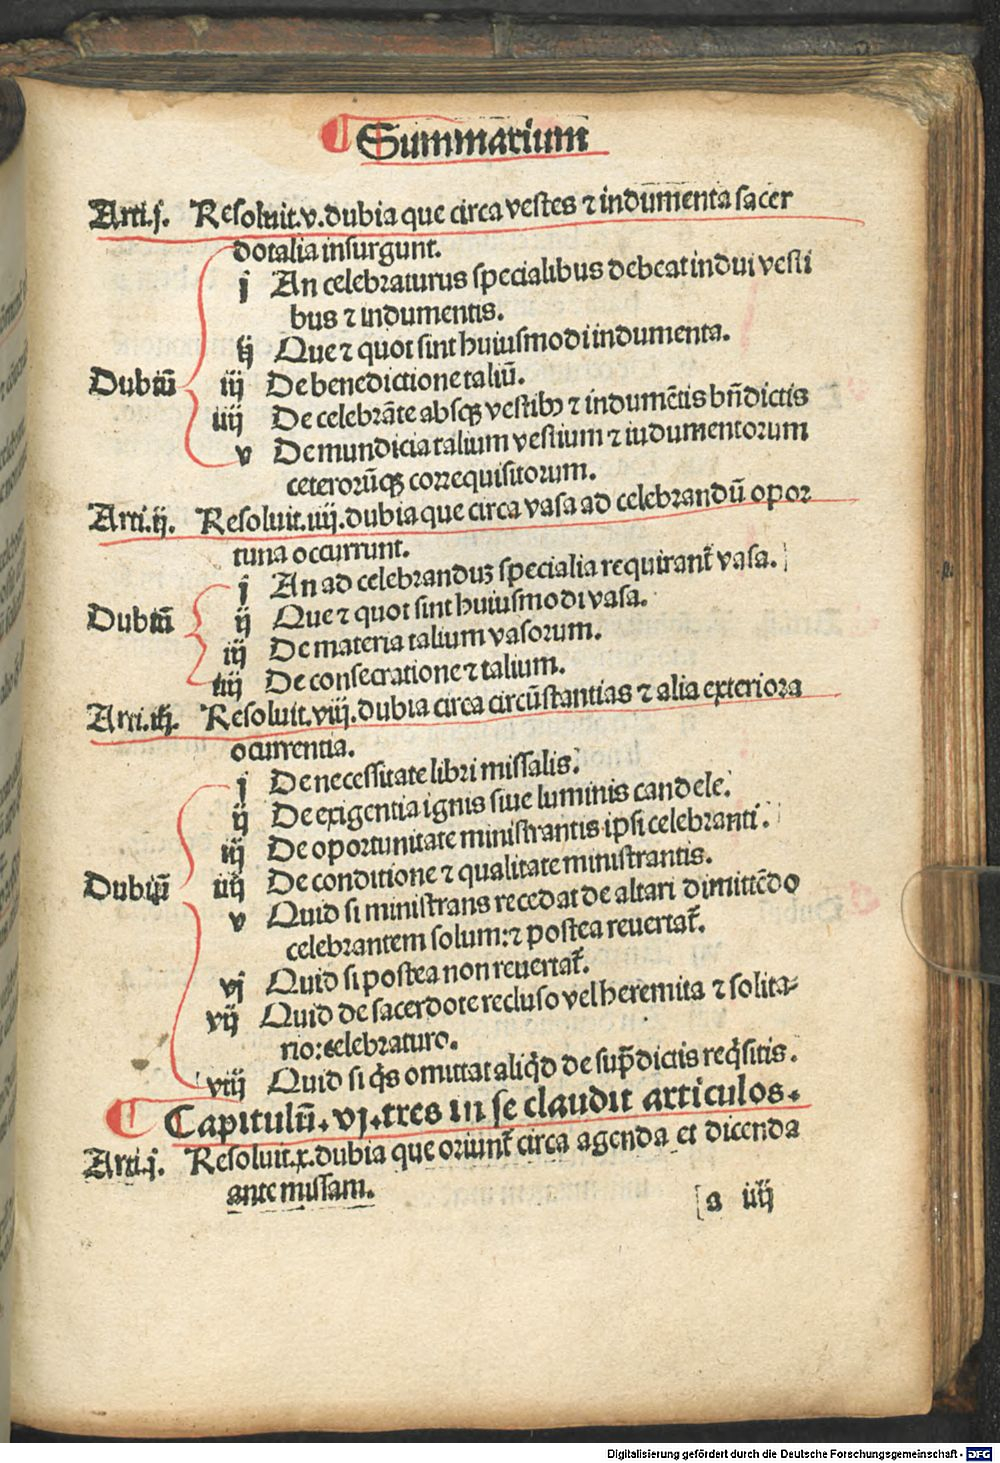 Summarium
Arti.j. Resoluit.v.dubia que circa vestes ⁊ indumenta sacer
dotalia insurgunt.
j An celebraturus specialibus debeat indui vesti
bus ⁊ indumentis.
ij Que ⁊ quot sint huiusmodi indumenta.
Dubiũ iij De benedictione taliũ.
iiij De celebrãte absqꝫ vestibꝫ ⁊ indumẽtis bñdictis
v De mundicia talium vestium ⁊ iudumentorum
ceterorũqꝫ correquisitorum.
Arti.ij. Resoluit.iiij.dubia que circa vasa ad celebrandũ opor
tuna occurrunt.
j An ad celebranduꝫ specialia requirant̃ vasa.
Dubiũ ij Que ⁊ quot sint huiusmodi vasa.
iij De materia talium vasorum.
iiij De consecratione ⁊ talium.
Arti.iij. Resoluit.viij.dubia circa circũstantias ⁊ alia exteriora
ocurrentia.
j De necessitate libri missalis.
ij De exigentia ignis siue luminis candele.
iij De oportunitate ministrantis ipsi celebranti.
Dubiũ iiij De conditione ⁊ qualitate ministrantis.
v Quid si ministrans recedat de altari dimittẽdo
celebrantem solum:⁊ postea reuertat̃.
vj Quid si postea non reuertat̃.
vij Quid de sacerdote recluso vel heremita ⁊ solita-
rio:celebraturo.
viij Quid si q̇s omittat aliq̇d de sup̃dictis req̇sitis.
Capitulũ.vj.tres in se claudit articulos.
Arti.j. Resoluit.x.dubia que oriunt̃ circa agenda et dicenda
ante missam.
a iiij
Digitalisierung gefördert durch die Deutsche Forschungsgemeinschaft - DFG